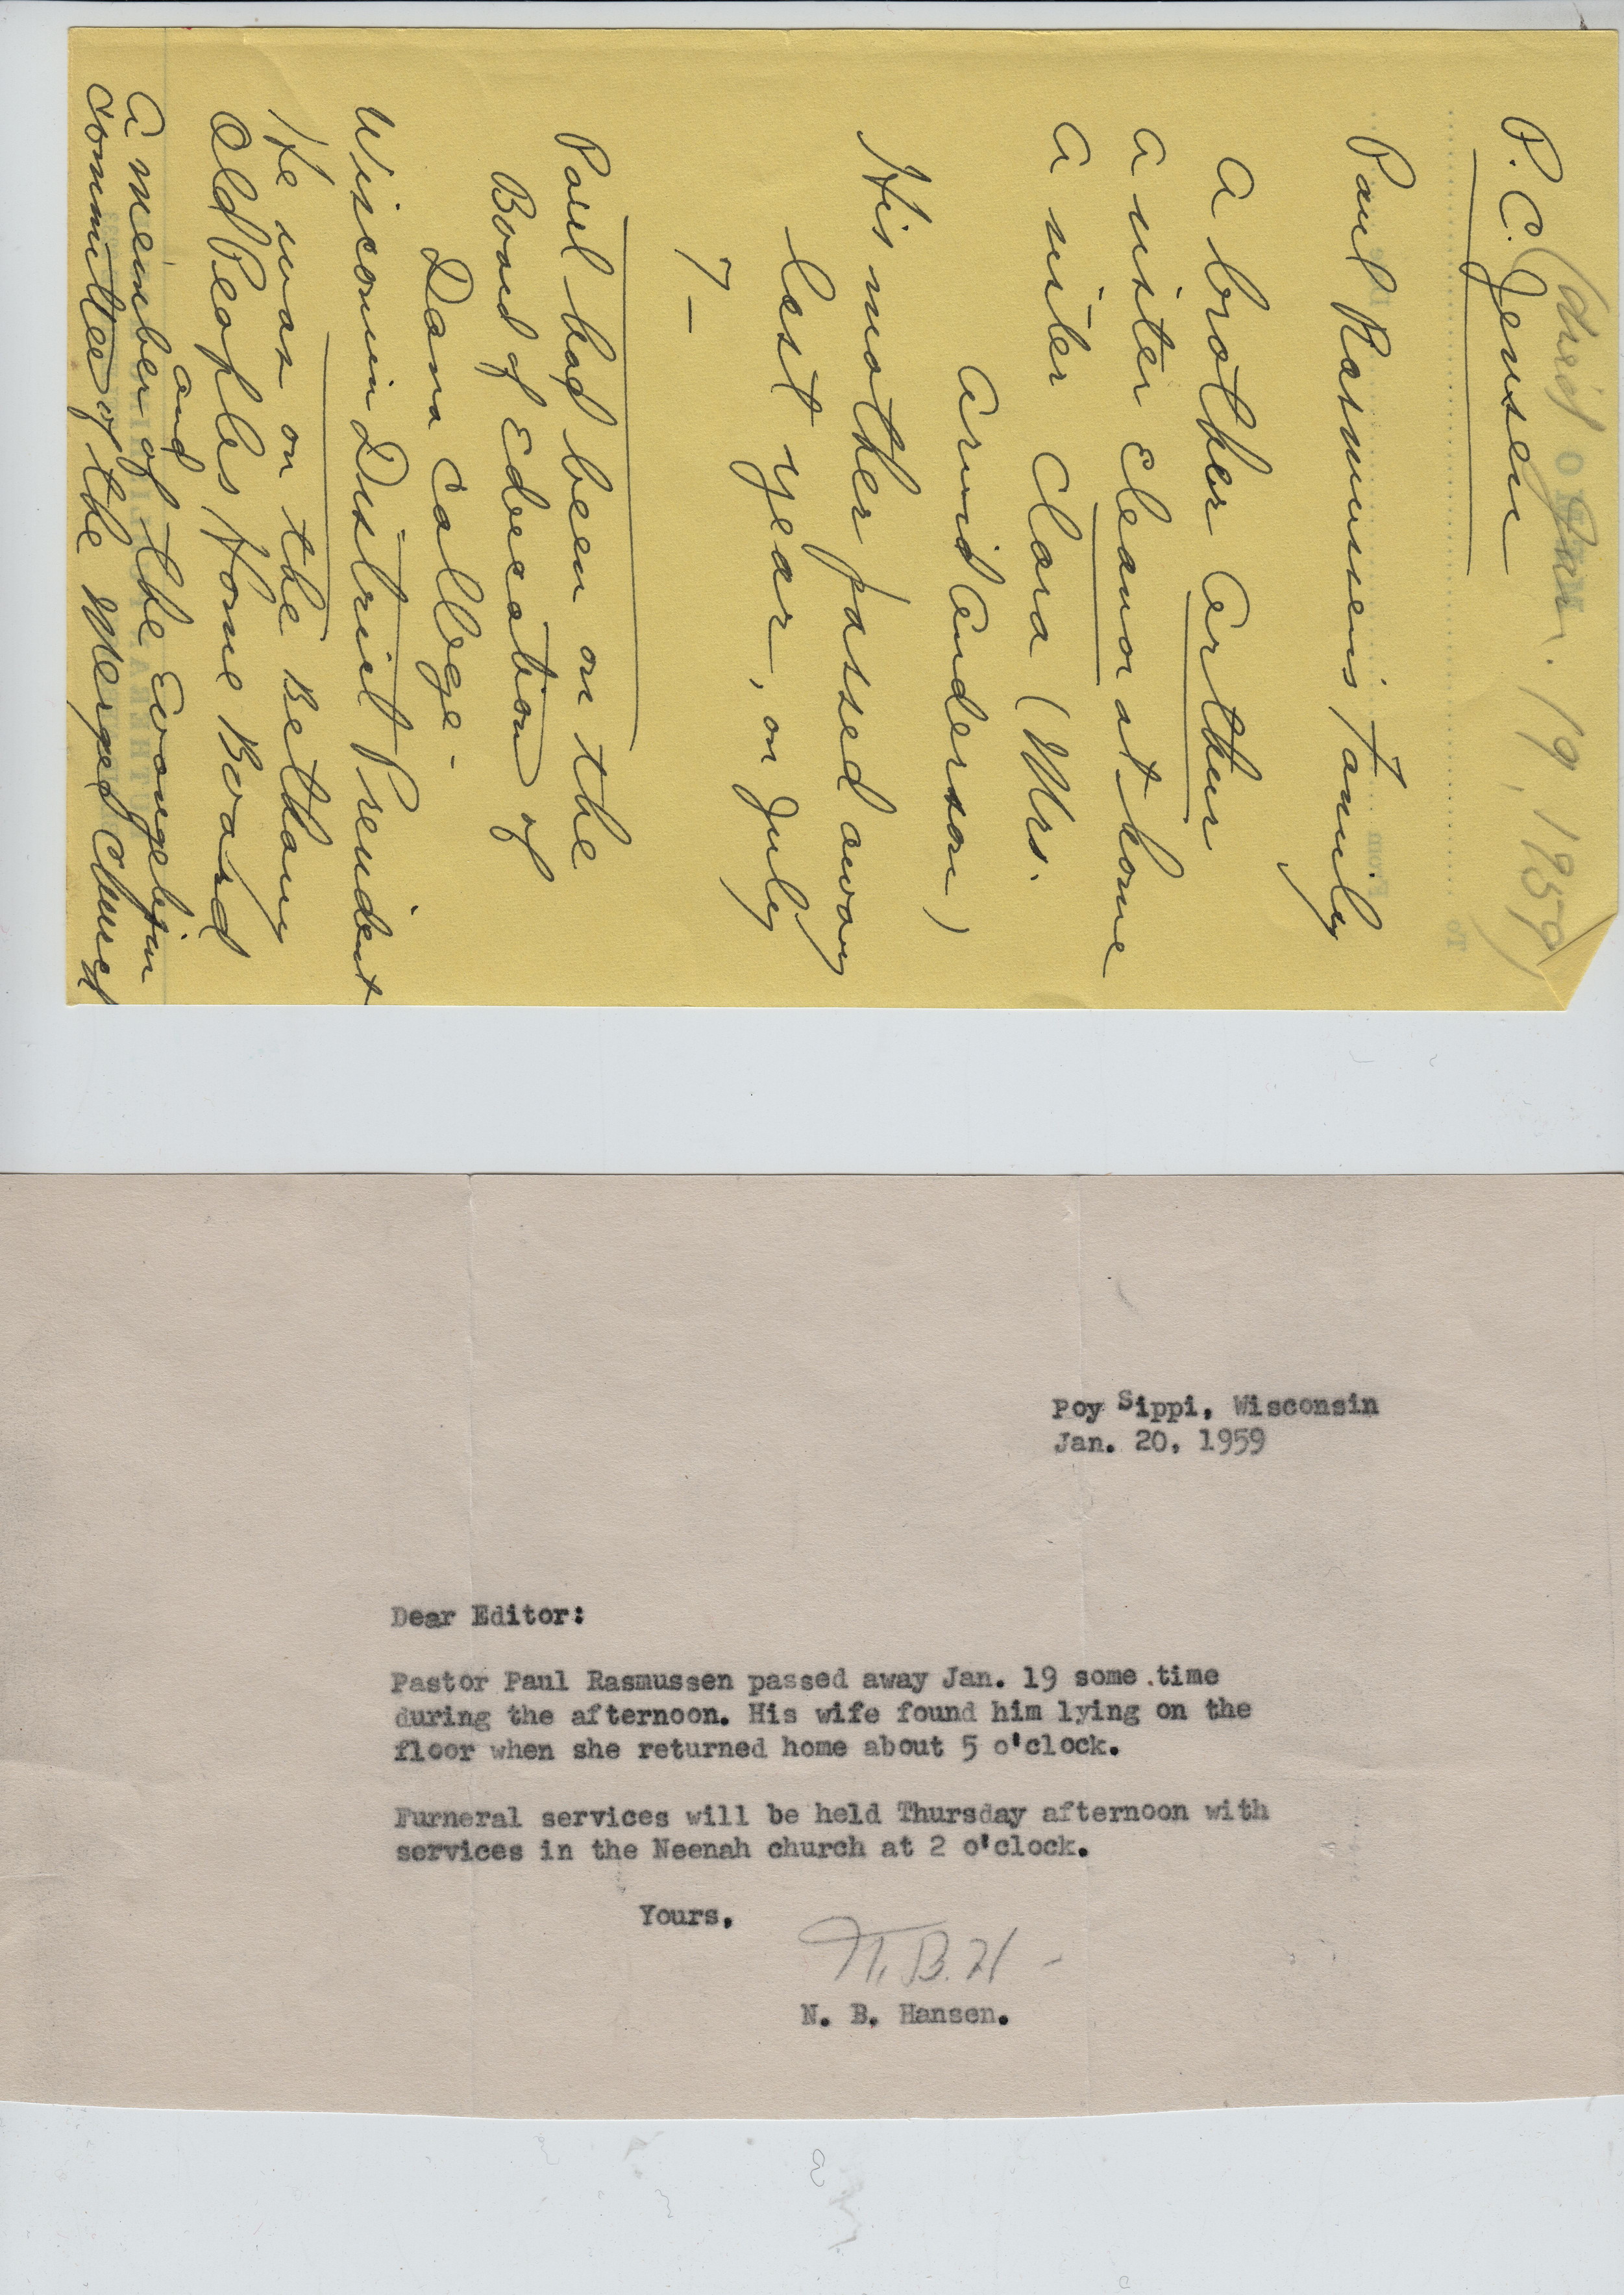 (died Jan. 19, 1959)
P. C. Jensen
Paul Rasmussen's Family
A brother Arthur
a sister Eleanor at home
a sister Clara (Mrs.
Arvid Anderson)
His mother passed away
last year, on July
7 —
Paul had been on the
Board of Education of
Dana College.
Wisconsin District President
He was on the Bethany
Old Peoples Home Board
and
a member of the Evangelism
committee of the merged church
Poy Sippi, Wisconsin
Jan. 20, 1959
Dear Editor:
Pastor Paul Rasmussen passed away Jan. 19 some .time
during the afternoon. His wife found him lying on the
floor when she returned home about 5 o'clock.
Furneral services will be held Thursday afternoon with
services in the Neenah church at 2 o'clock.
Yours,
N. B. H -
N. B. Hansen.